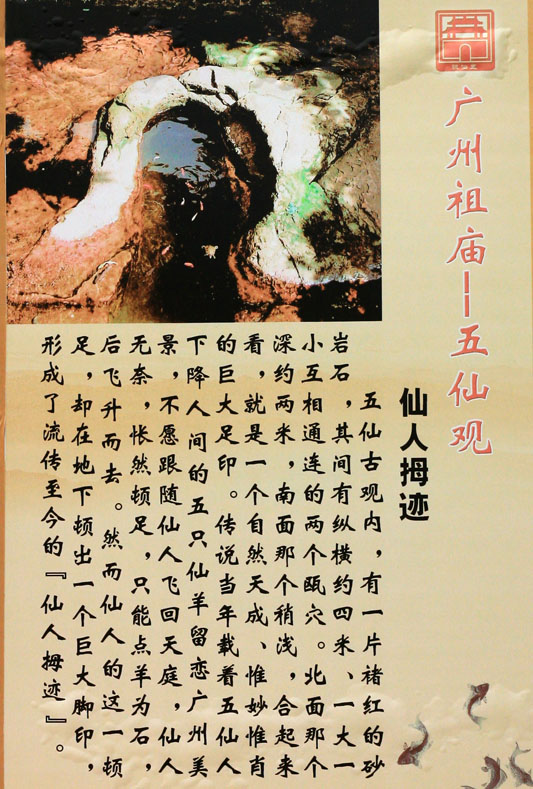 广州祖庙——五仙观
仙人拇迹
五仙古观内，有一片褚红的砂
岩石，其间有纵横约四米、一大一
小互相通连的两个瓯穴。北面那个
深约两米，南面那个稍浅，合起来
看，就是一个自然天成、惟妙惟肖
的巨大足印。传说当年载着五仙人
下降人间的五只仙羊留恋广州美
景，不愿跟随仙人飞回天庭，仙人
无奈，怅然顿足，只能点羊为石，
后飞升而去。然而仙人的这一顿
足，却在地下顿出一个巨大脚印，
形成了流传至今的『仙人拇迹』。